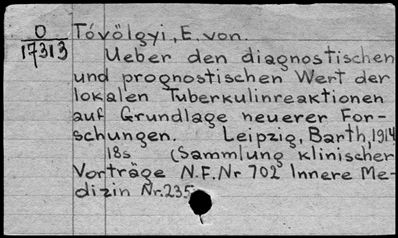 O
17313
Tóvölgyi, E. von.
Ueber den diagnostischen
und prognostischen Wert der
lokalen Tuberkulinreaktionen
auf Grundlage neuerer For-
schungen. Leipzig, Barth, 1914
18s (Sammlung klinischer
Vorträge N.F. Nr 702 Innere Me-
dizin Nr. 235